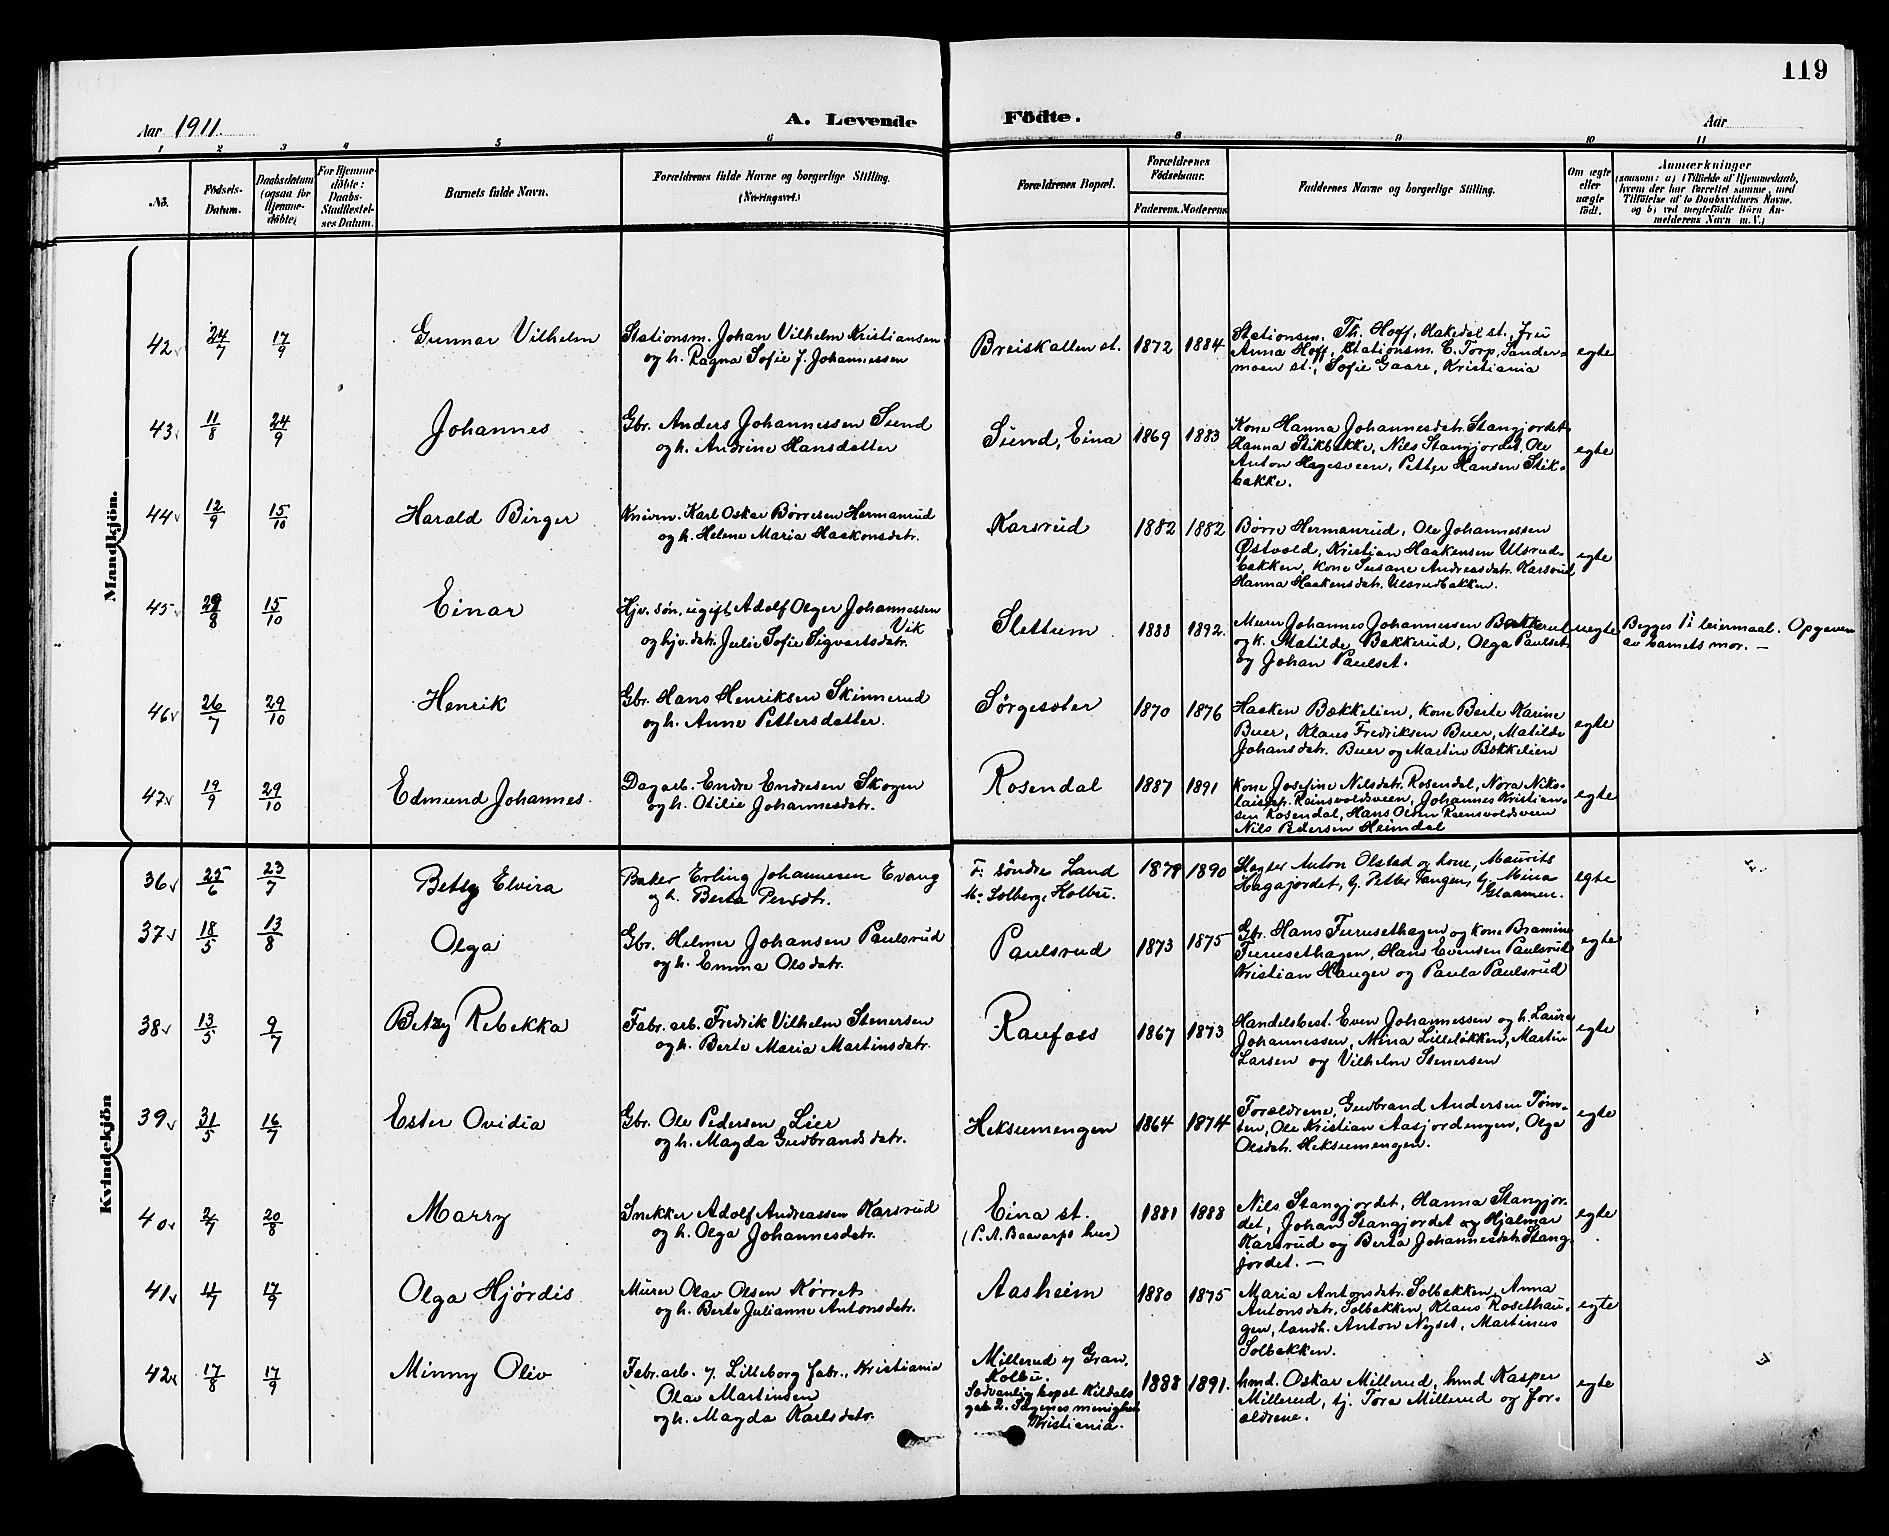 119
Aar 1911.
A. Levende Födte.
Aar
1 2 3 4 5 6 8 9 10 11
No.
Födsels-Datum.
Daabsdatum (ogsaa for Hjemme-döbte)
For Hjemme-döbte: Daabs-Stadfestel-ses Datum.
Barnets fulde Navn.
Forældrenes fulde Navne og borgerlige Stilling.
(Næringsvei.)
Forældrenes Bopæl.
Forældrenes Födselsaar.
Faderens. Moderens.
Faddernes Navne og borgerlige Stilling.
Om ægte eller uægte født.
Anmærkninger
(saasom: a) i Tilfælde af Hjemmedaab, hvem der har forrettet samme, med Tilföielse af to Daabsvidners Navne. og b) ved uegtefödte Börn An-melderens Navn m. V.)
Mandkjön.
42 24/7 17/9 Gunnar Vilhelm
Stationsm. Johan Vilhelm Kristiansen
og h. Ragna Sofie f. Johannessen
Breiskallen st. 1872 1884
Stationsm. Th. Hoff, Hakedal st. Fru
Anna Hoff, Stationsm. E. Torp, Sander-
moen st., Sofie Gaare, Kristiania
egte
43 11/8 24/9 Johannes
Gbr. Anders Johannessen Sund
og h. Andrine Hansdatter
Sund, Eina 1869 1883
Kone Hanna Johannesdatr. Stangjordet
Hanna Stikbakke, Nils Stangjordet, Ole
Anton Hagesveen, Petter Hansen Stik-
bakke.
egte
44 12/9 15/10 Harald Birger
Knivm. Karl Oskar Børresen Hermanrud
og h. Helene Maria Haakonsdatr.
Karsrud 1882 1882
Børre Hermanrud, Ole Johannessen
Østvold, Kristian Haakensen Ulsrud-
bakken, kone Susane Andreasdatr. Karsrud
Hanna Haakensdatr. Ulsrudbakken.
egte
45 29/8 15/10 Einar
Hjv. søn, ugift Adolf Olger Johannessen Vik
og hjv. datr. Julie Sofie Sigvartsdatr.
Slettum 1888 1892.
Murer Johannes Johannessen Bakkerud
og k. Matilde Bakkerud, Olga Paulset,
og Johan Paulset.
uegte
Begges 1ste leiermaal. Opgaven
av barnets mor. —
46 26/7 29/10 Henrik
Gbr. Hans Henriksen Skinnerud
og h. Anne Pettersdatter.
Sørgesæter 1870 1876
Haaken Bækkelien, kone Berte Karine
Buer, Klaus Fredriksen Buer, Matilde
Johansdatr. Buer og Martin Bækkelien
egte
47 19/9 29/10 Edmund Johannes
Dagarb. Endre Endresen Skogen
og h. Otilie Johannesdatr.
Rosendal 1887 1891
Kone Josefine Nilsdatr. Rosendal, Nora Niko-
laisdtr. Reinsvoldsveen, Johannes Kristian-
sen Rosendal, Hans Olsen Reinsvoldsveen
Nils Pedersen Heimdal
egte
Kvindekjön
36 25/6 23/7 Betsy Elvira
Baker Erling Johannesen Evang
og h. Berta Persdtr.
F. søndre Land
M: Solberg, Kolbu.
1879 1890
Slagter Anton Olstad og kone, Maurits
Hagajordet, Gj. Petter Tangen, Gj. Mina
Glaamen.
egte
37 18/5 13/8 Olga
Gbr. Helmer Johansen Paulsrud
og h. Emma Olsdatr.
Paulsrud 1873 1875
Gbr. Hans Furusethagen og kone Bramine
Furusethagen, Hans Evensen Paulsrud
Kristian Hauger og Paula Paulsrud
egte
38 13/5 9/7 Betzy Rebekka
Fabr. arb. Fredrik Vilhelm Stenersen
og h. Berte Maria Martinsdatr.
Raufoss 1867 1873
Handelsbest. Even Johannessen og h. Laura
Johannessen, Mina Lilleløkken, Martin
Larsen og Vilhelm Stenersen
egte
39 31/5 16/7 Ester Ovidia
Gbr. Ole Pedersen Lier
og h. Magda Gudbrandsdatr.
Heksumengen 1864 1874
Forældrene, Gudbrand Andersen Tøm-
ten, Ole Kristian Aasjordengen, Olga
Olsdatr. Heksumengen.
egte
40 2/7 20/8 Marry
Snekker Adolf Andreassen Karsrud
og h. Olga Johannesdatr.
Eina st.
(P. A. Baevarps hus)
1881 1888
Nils Stangjordet, Hanna Stangjor-
det, Johan Stangjordet og Hjalmar
Karsrud og Berta Johannesdatr. Stang-
jordet. —
egte
41 4/7 17/9 Olga Hjørdis
Murer Olav Olsen Kørret
og h. Berte Julianne Antonsdatr.
Aasheim 1880 1875
Maria Antonsdatr. Solbakken, Anna
Antonsdatr. Solbakken, Klaus Rosethau-
gen, landh. Anton Nyset, Martinus
Solbakken.
egte
42 17/8 17/9 Minny Oliv
Fabr. arb. v. Lilleborg fabr., Kristiania
Olav Martinsen
og h. Magda Karlsdatr.
Millerud v Gran,
Kolbu.
Sædvanlig bopæl Kildals
gate 2. Sagenes menighet
Kristiania.
1888 1891.
hmd. Oskar Millerud, hmd Kasper
Millerud, tj. Tora Millerud og for-
ældrene.
egte